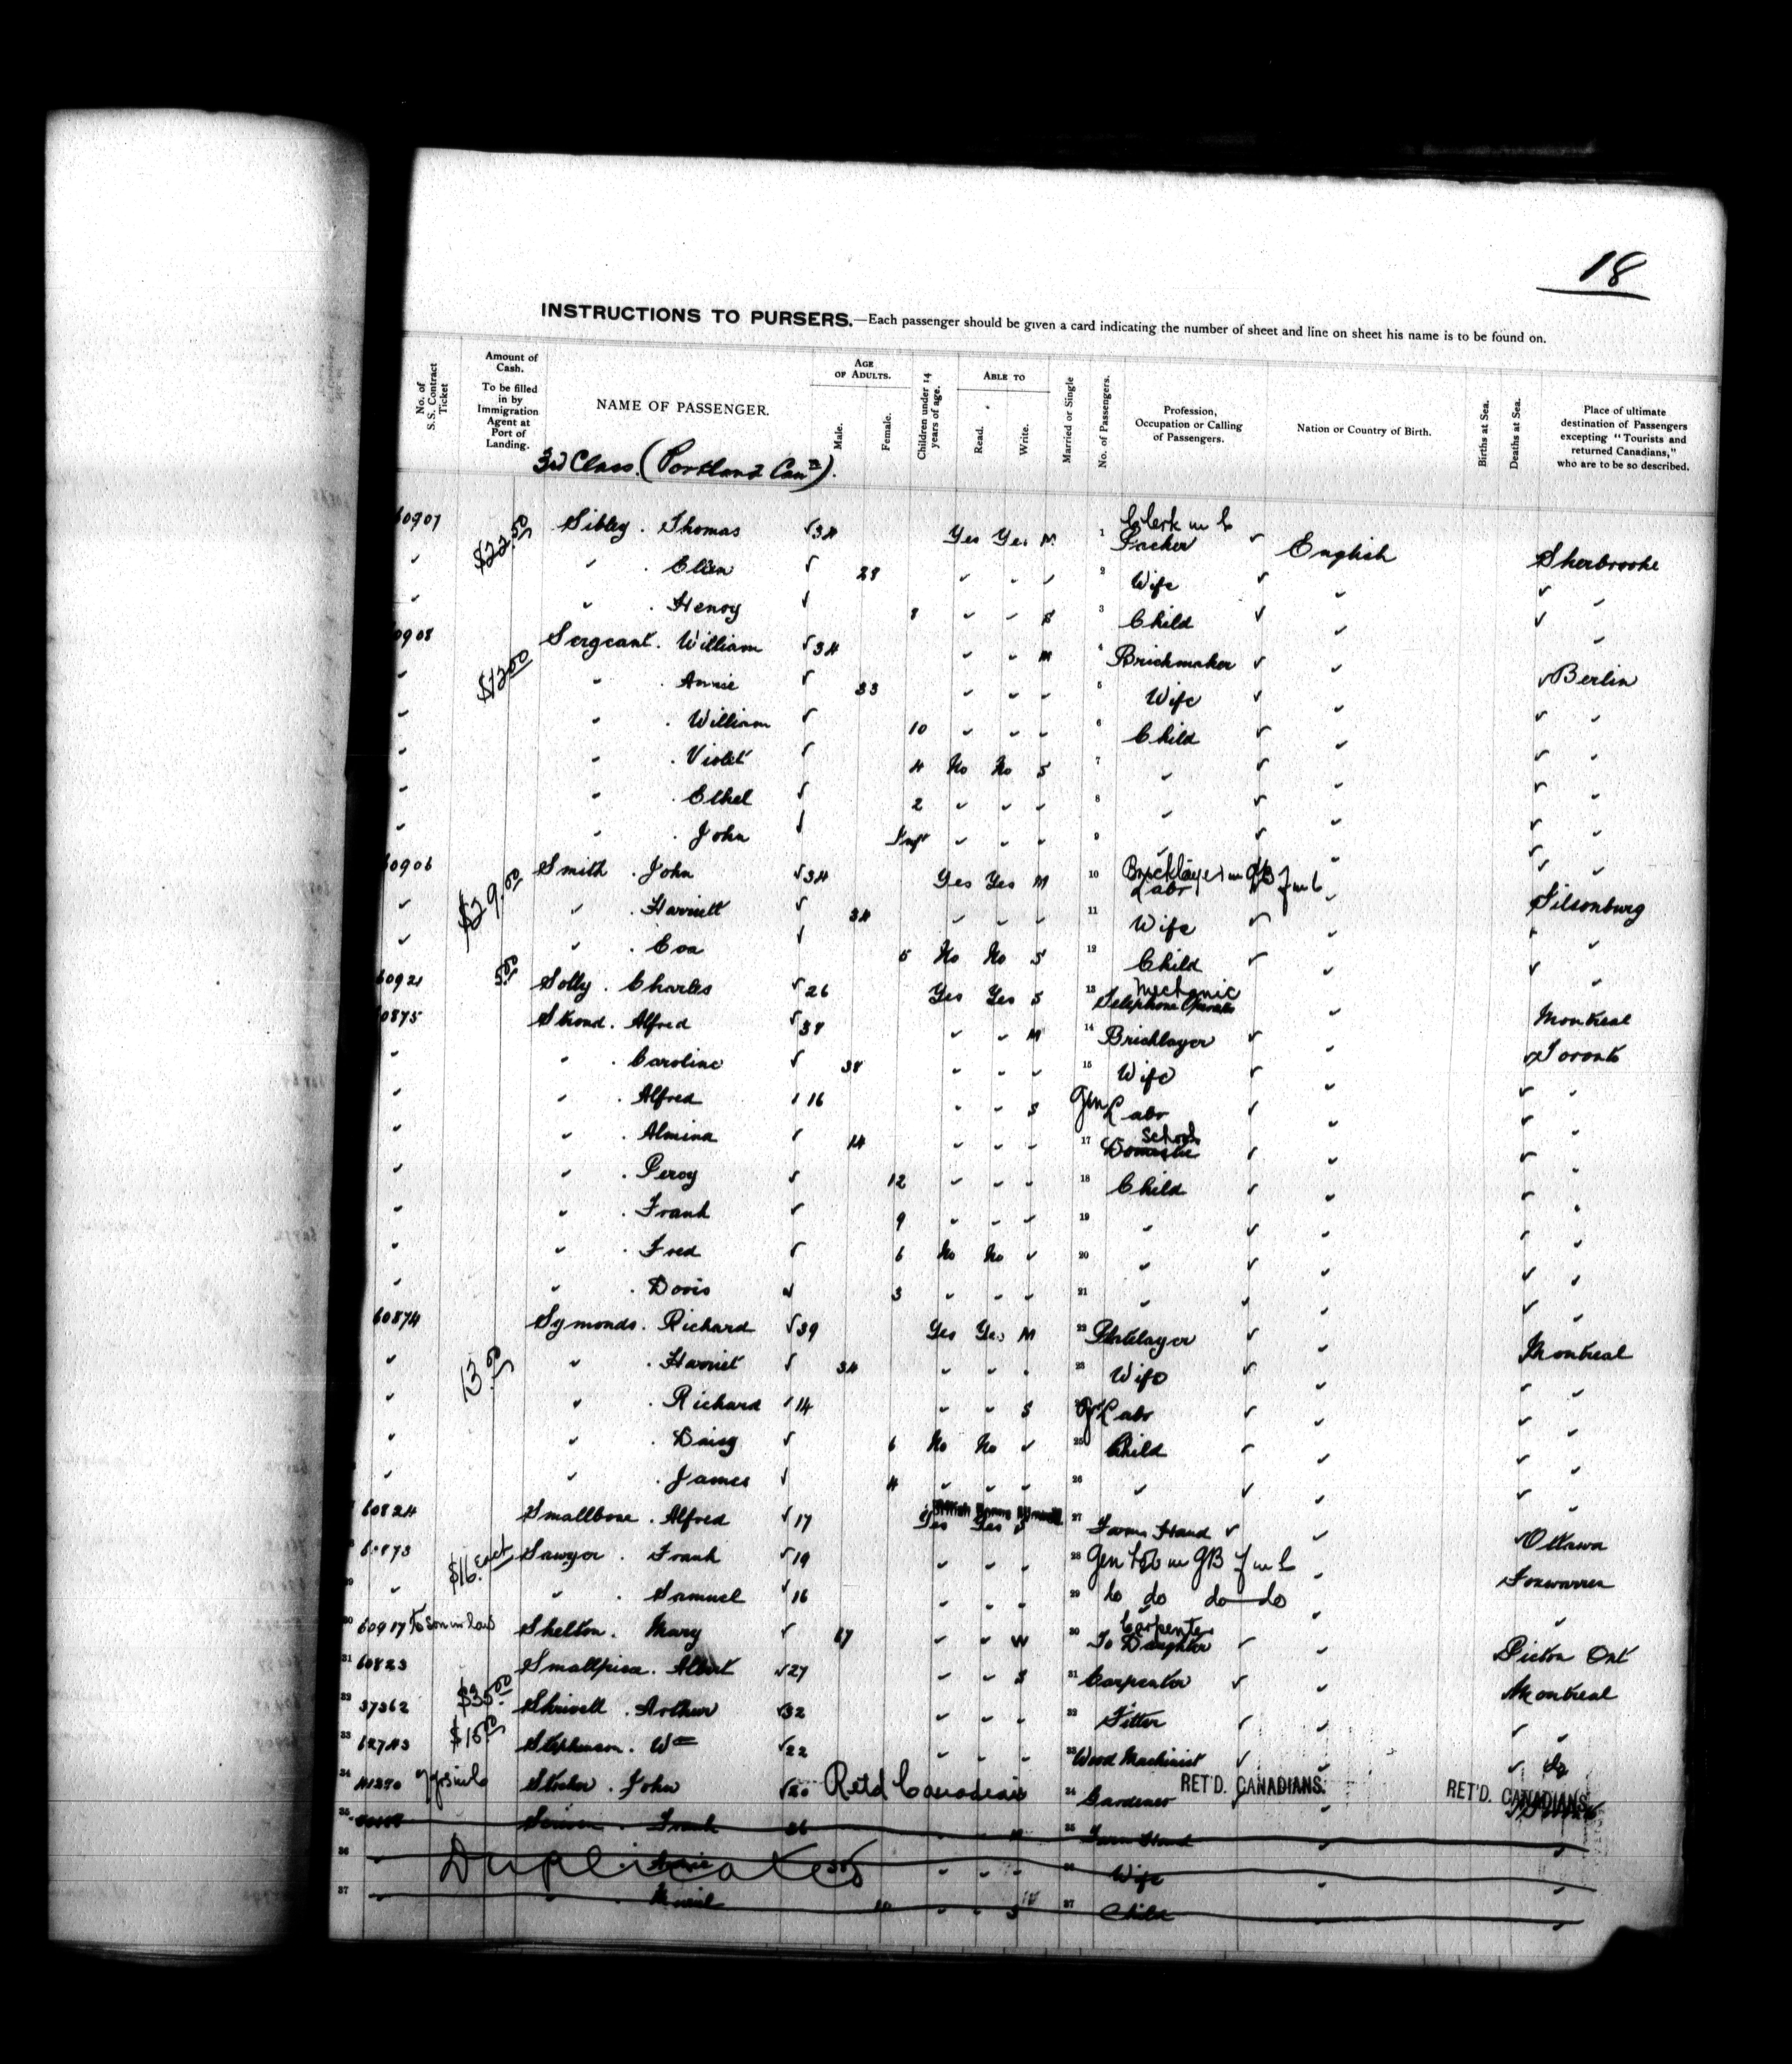 18
INSTRUCTIONS TO PURSERS.—Each passenger should be given a card indicating the number of sheet and line on sheet his name is to be found on.
No. of S.S. Contract Ticket
Amount of Cash. To be filled in by Immigration Agent at Port of Landing.
NAME OF PASSENGER.
AGE OF ADULTS.
Male.
Female.
Children under 14 years of age.
ABLE TO
Read.
Write.
Married or Single
No. of Passengers.
Profession, Occupation or Calling of Passengers.
Nation or Country of Birth.
Births at Sea.
Deaths at Sea.
Place of ultimate destination of Passengers excepting "Tourists and returned Canadians," who are to be so described.
3rd Class. (Portland Can).
60907 $22.50 Sibley. Thomas √34 Yes Yes M 1 Clerk in Packer ✓ English Sherbrooke
" " . Ellen √ 28 " " " 2 Wife ✓ " ✓ "
" " . Henry √ 8 " " S 3 Child ✓ " ✓ "
0908 $12.00 Sergeant. William √34 " " M 4 Brickmaker ✓ " ✓ Berlin
" " . Annie √ 33 " " " 5 Wife ✓ " ✓ "
" " . William √ 10 " " " 6 Child ✓ " ✓ "
" " . Violet √ 4 No No S 7 " ✓ " ✓ "
" " . Ethel √ 2 " " " 8 " ✓ " ✓ "
" " . John √ Inft " " " 9 " ✓ " ✓ "
60906 $29.50 Smith . John √34 Yes Yes M 10 Bricklayer in GB Labr " Tilsonburg
" " . Harriett √ 34 " " " 11 Wife ✓ " ✓ "
" " . Eva √ 5 No No S 12 Child ✓ " ✓ "
60921 5.00 Solly . Charles √26 Yes Yes S 13 Mechanic Telephone " Montreal
0875 Stroud. Alfred √38 " " M 14 Bricklayer ✓ " ✓ Toronto
" " . Caroline √ 38 " " " 15 Wife ✓ " ✓ "
" " . Alfred √ 16 " " S Gen Labr ✓ " ✓ "
" " . Almina √ 14 " " " 17 School Domestic ✓ " ✓ "
" " . Percy √ 12 " " " 18 Child ✓ " ✓ "
" " . Frank √ 9 " " " 19 " ✓ " ✓ "
" " . Fred √ 6 No No " 20 " ✓ " ✓ "
" " . Doris √ 3 " " " 21 " ✓ " ✓ "
60874 Symonds. Richard √39 Yes Yes M 22 Platelayer ✓ " Montreal
" 13.50 " . Harriet √ 34 " " " 23 Wife ✓ " ✓ "
" " . Richard √14 " " S Labr ✓ " ✓ "
" " . Daisy √ 6 No No " 25 Child ✓ " ✓ "
" " . James √ 4 " " " 26 " ✓ " ✓ "
60824 Smallbone . Alfred √17 Yes Yes S 27 Farm Hand ✓ " ✓ Ottawa
60873 $16. Each Sawyer . Frank √19 " " " 28 Gen Lab in GB " Foxwarren
29 " " . Samuel √16 " " " 29 do do do do " "
30 60917 To son in law Shelton . Mary √ 67 " " W 30 Carpenter To Daughter ✓ " Picton Ont
31 60823 Smallpiece. Albert √27 " " S 31 Carpenter ✓ " Montreal
32 37362 $35.00 Shrivell . Arthur √32 " " " 32 Fitter ✓ " ✓ "
33 62743 $15.00 Stephenson. Wm √22 " " " 33 Wood Machinist ✓ " ✓ do
34 41270 John √20 Retd Canadian 34 Gardener RET'D. CANADIANS. RET'D. CANADIANS.
35 Scriven . Frank 36 " " M 35 Farm Hand " "
36 " Duplicates . Annie " " " 36 Wife " "
37 " " . 10 " " S 37 Child " "